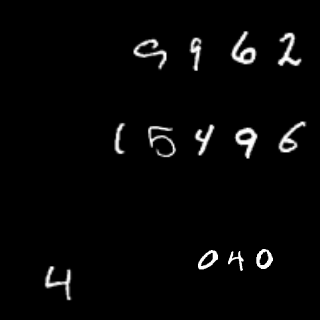 9962
15496
040
4